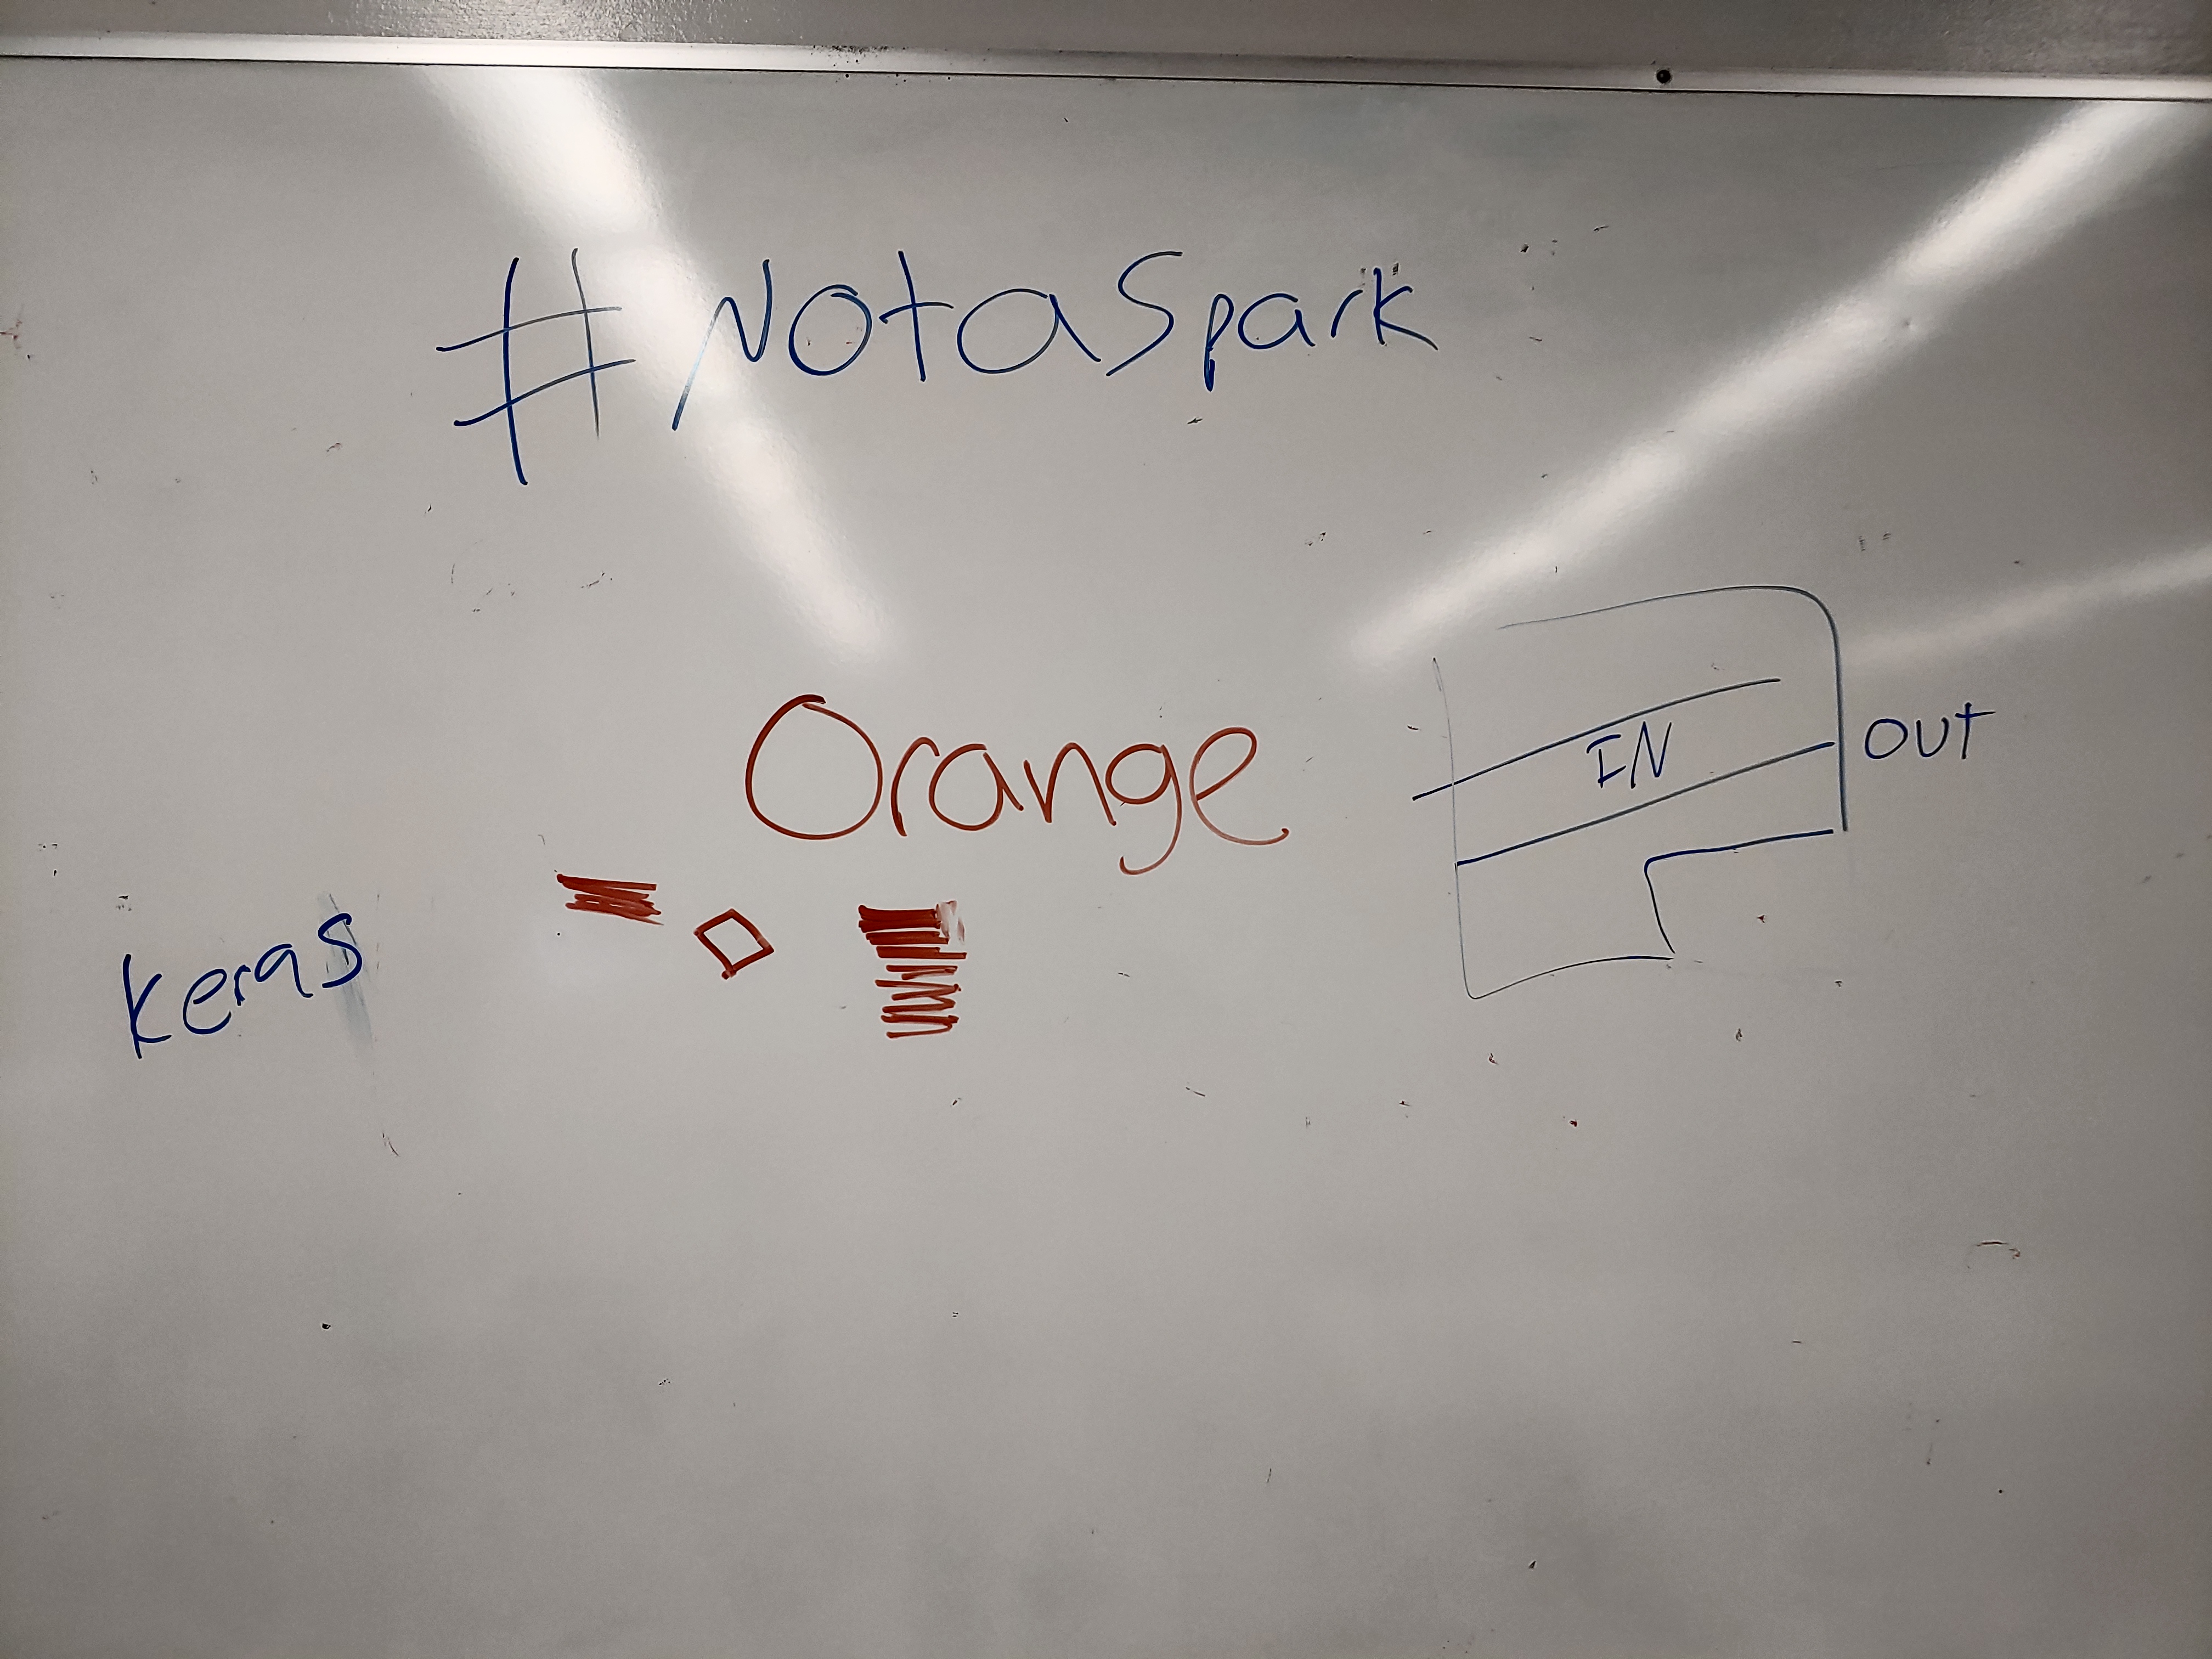 #NotaSpark
Orange
IN
OUT
keras